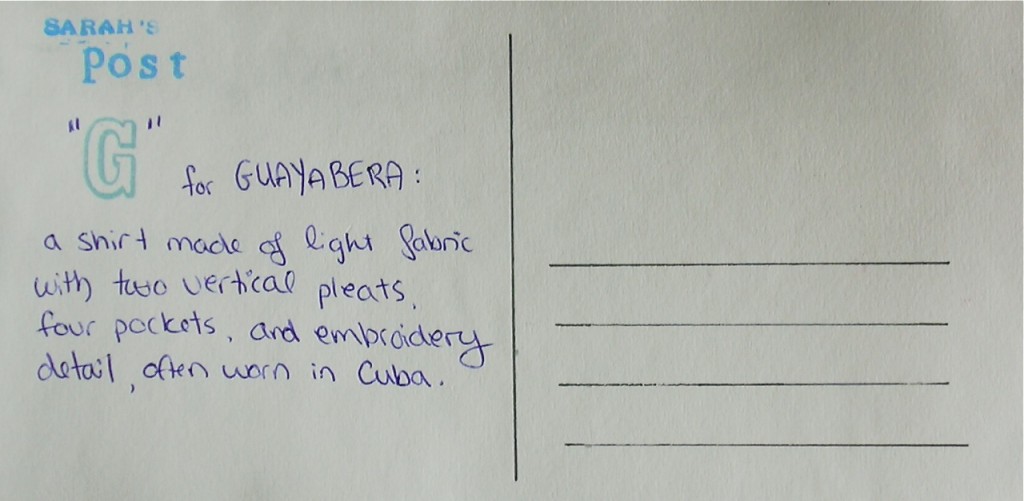 SARAH'S
Post
"G"
for GUAYABERA:
a shirt made of light fabric
with two vertical pleats,
four pockets, and embroidery
detail, often worn in Cuba.